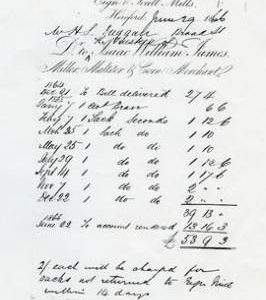 Eign & Scutt Mills,
Hereford, June 29 1866
Mr H. S. Juggan Broad St
Dr to Isaac William James,
Miller, Maltster & Corn Merchant,
1864
Dec 21 To Bill delivered 27 4
1865
Jany 7 1 Cwt Bran 6 6
Feby 7 1 Sack Seconds 1 12 6
Mch 25 1 Sack do 1 10
May 25 1 do do 1 10
July 29 1 do do 1 12 6
Sept 4 1 do do 1 17 6
Nov 7 1 do do 2 " "
Dec 22 1 do do 2 " "
39 13 "
1866
June 22 To account rendered 13 16 3
£ 53 9 3
2/ each will be charged for
sacks not returned to Eign Mill
within 14 days